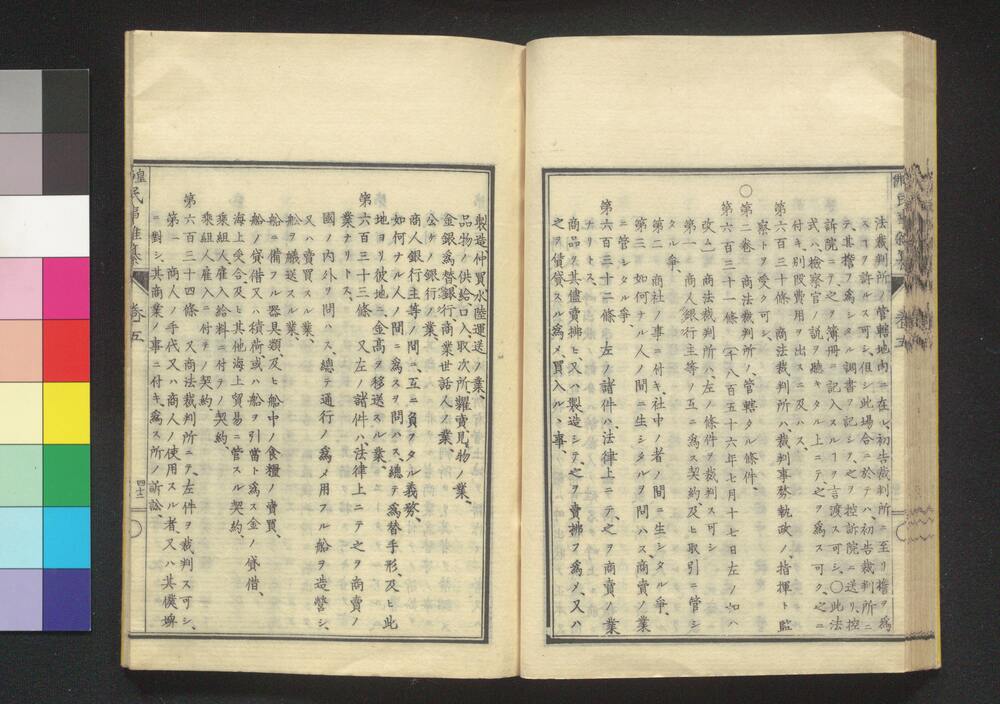 法裁判所ノ管轄地內ニ在ヒ初告裁判所ニ至リ擔ヲ爲
スヿヲ許ルス可シ但シ此場合ニ於テハ、初告裁判所ニ
テ其擔ヲ爲シタル調書ヲ記シ、之ヲ控訴院ニ送リ、控
訴院ニテ之ヲ簿冊ニ記入スルヿヲ言渡ス可シ、〇此法
式ハ、檢察官ノ說ヲ聽キタル上ニテ、之ヲ爲ス可ク、之ニ
付キ、別段費用ヲ出スニ及ハス、
第六百三十條 商法裁判所ハ、裁判事務執政ノ、指揮ト監
察トヲ受ク可シ、
〇第二卷 商法裁判所ノ、管轄タル條件、
第六百三十一條 (千八百五十六年七月十七日左ノ如ハ
改ム) 商法裁判所ハ、左ノ條件ヲ裁判ス可シ
第一 商人銀行主等ノ互ニ爲ス契約及ヒ取引ニ管シ
タル爭、
第二 商社ノ事ニ付キ、社中ノ者ノ間ニ生シタル爭、
第三 如何ナル人ノ間ニ生シタルヲ問ハス、商賣ノ業
ニ管シタル爭、
第六百三十二條 左ノ諸件ハ、法律上ニテ、之ヲ商賣ノ業
ナリトス、
商品ヲ其儘賣拂ヒ、又ハ製造シテ之ヲ賣拂フ爲メ、又ハ
之ヲ賃貸スル爲メ、買入ルヽ事、
製造、仲買、水陸運送ノ業、
品物ノ供給、口入、取次所、糶賣、見セ物ノ業、
金銀爲替、銀行、商業世話人ノ業、
公ケノ銀行ノ業、
商人銀行主等ノ間ニ、互ニ負フタル義務、
如何ナル人ノ間ニ爲スヲ問ハス、總テ爲替手形、及ヒ此
地ヨリ彼地ニ金高ヲ移送スル業、
第六百三十三條 又左ノ諸件ハ、法律上ニテ之ヲ商賣ノ
業ナリトス、
國ノ內外ヲ問ハス、總テ通行ノ爲メ用フル船ヲ造營シ、
又ハ賣買スル業、
船ヲ艤送スル業、
船ニ備フル器具類、及ヒ船中ノ食糧ノ賣買、
船ノ貸借又ハ積荷或ハ船ヲ引當ト爲ス金ノ貸借、
海上受合及ヒ其他海上貿易ニ管スル契約、
乘組人雇入給料ニ付テノ契約、
乘組人雇入ニ付テノ契約、
第六百三十四條 又商法裁判所ニテ、左件ヲ裁判ス可シ、
第一 商人ノ手代又ハ商人ノ使用スル者、又ハ其僕婢
ニ對シ、其商業ノ事ニ付キ、爲ス所ノ訴訟、
卷五
四十二